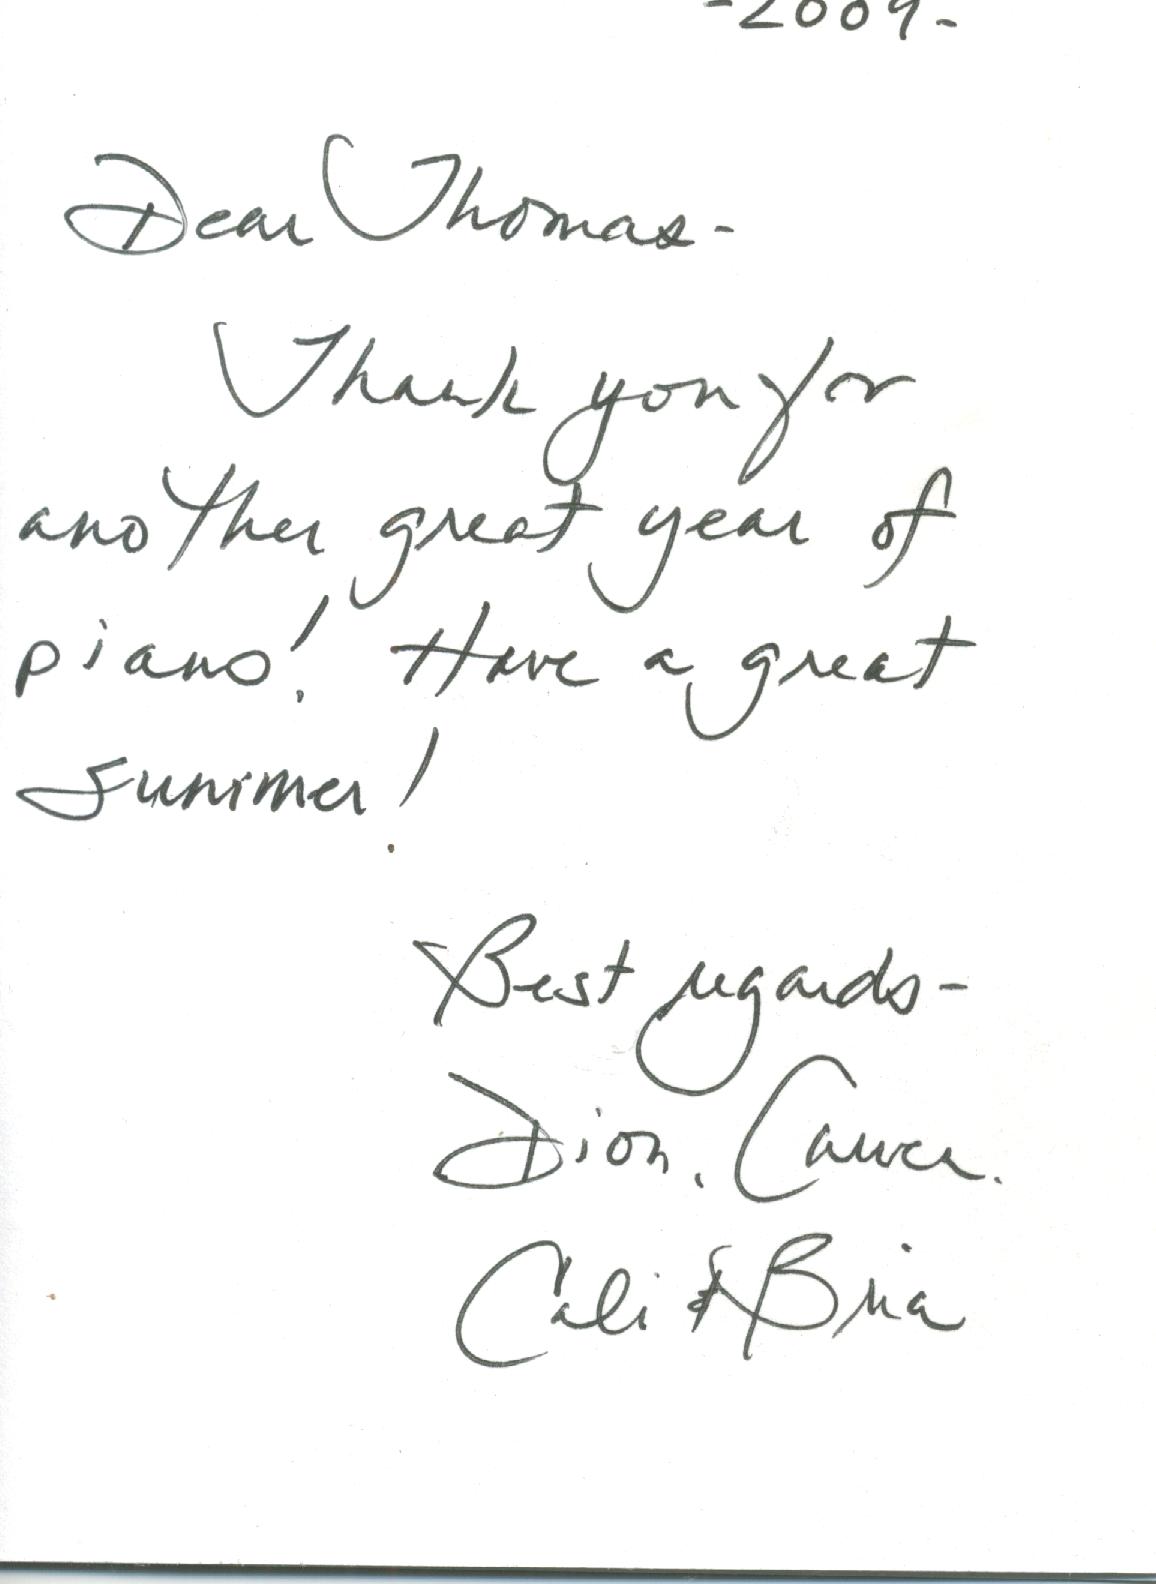 -2009-
Dear Thomas-
Thank you for
another great year of
piano! Have a great
summer!
Best regards-
Dion,
Cali & Bria